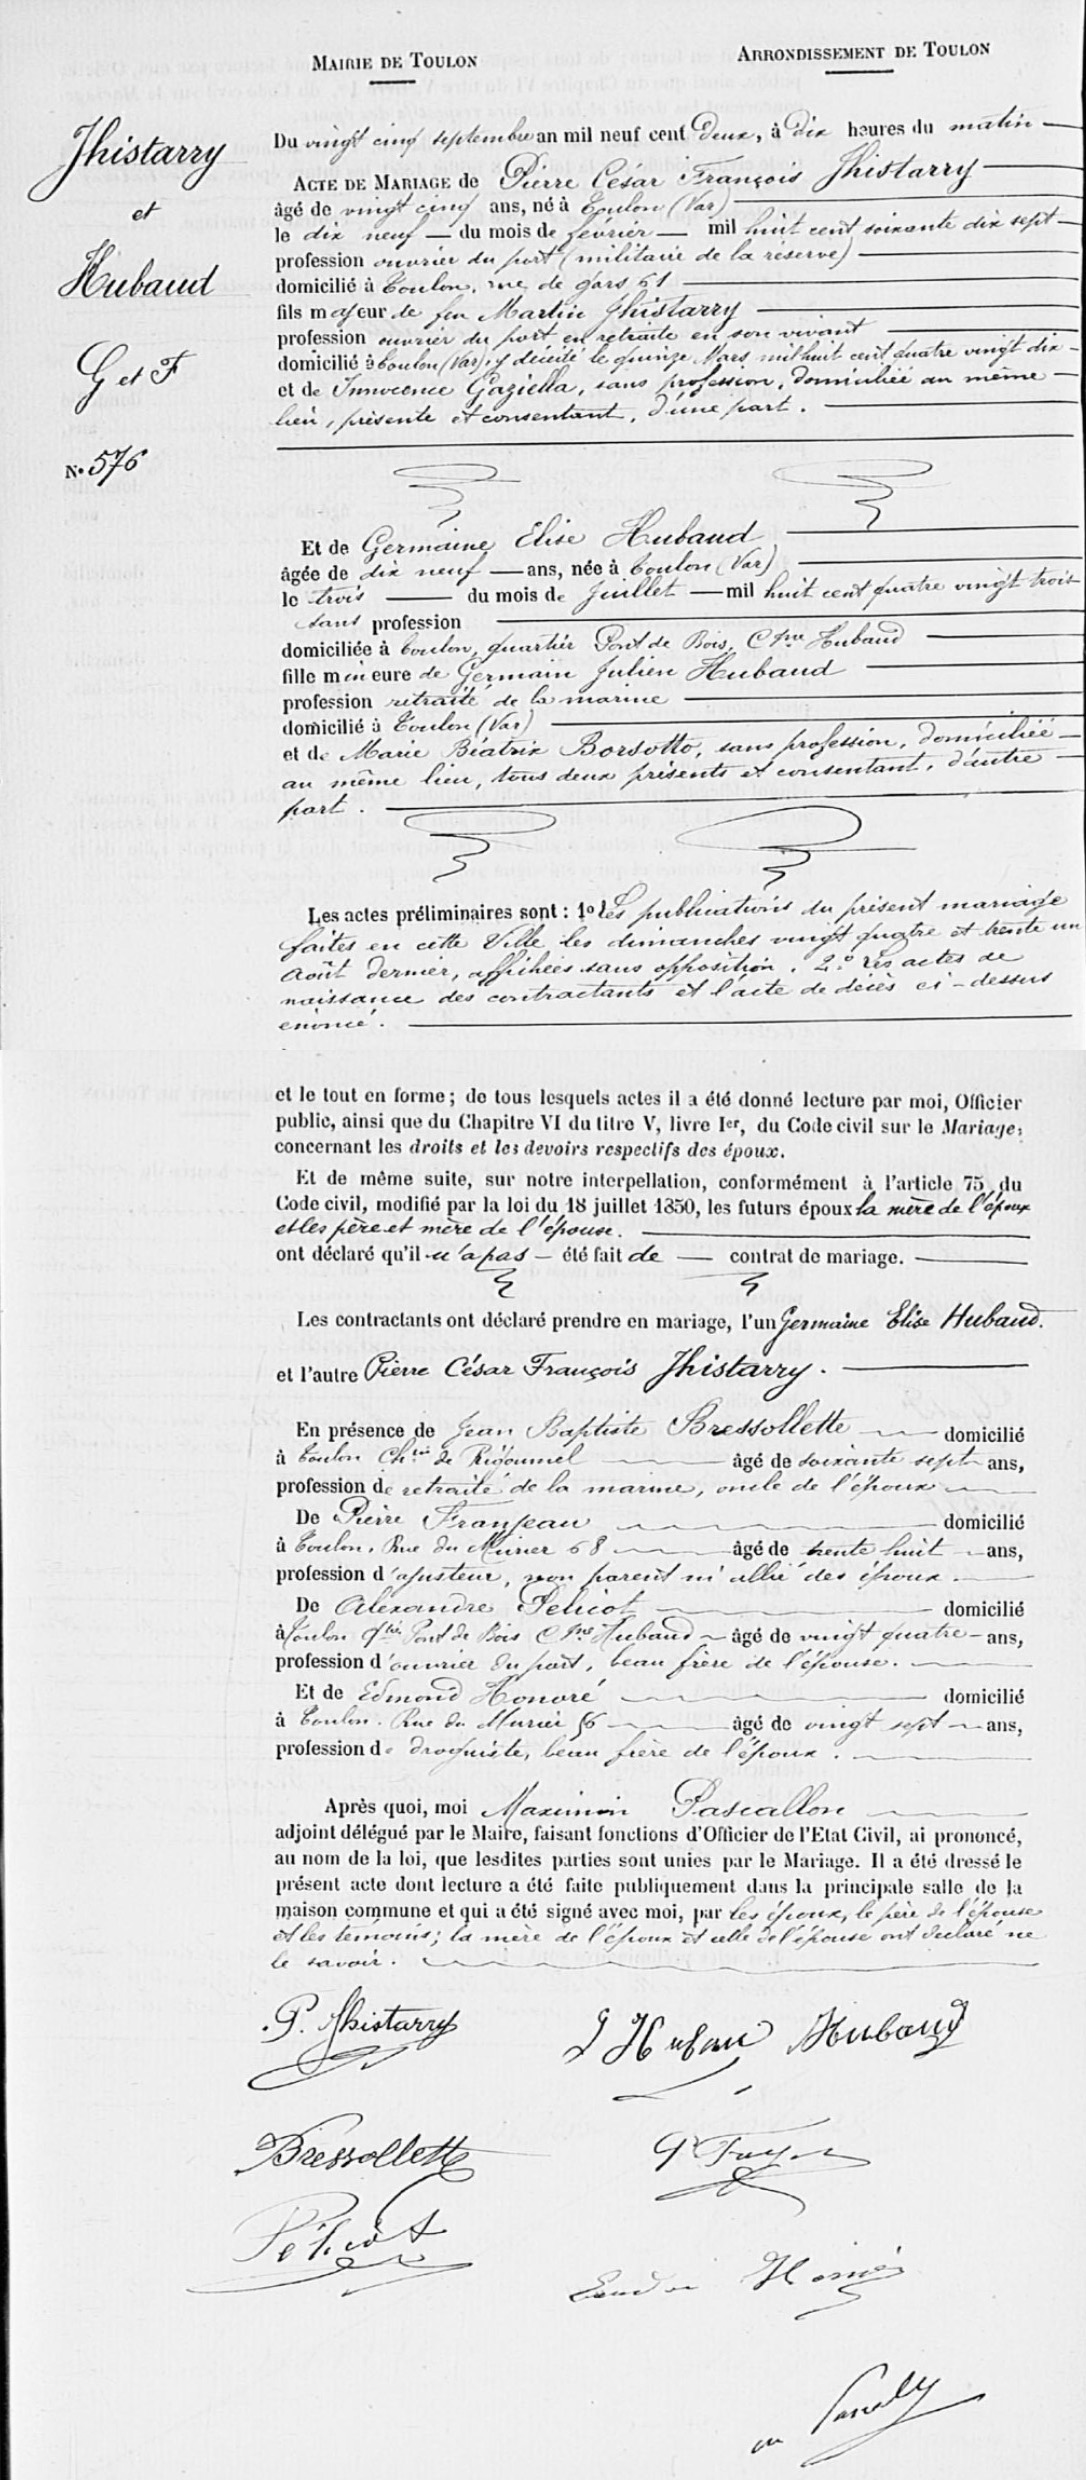 MAIRIE DE TOULON
ARRONDISSEMENT DE TOULON
Jhistarry
et
Hubaud
G et F
N° 576
Du vingt cinq septembre an mil neuf cent Deux, à Dix heures du matin
ACTE DE MARIAGE de Pierre César François Jhistarry
âgé de vingt cinq ans, né à Toulon (Var)
le dix neuf du mois de février mil huit cent soixante dix sept
profession ouvrier du port (militaire de la réserve)
domicilié à Toulon, rue de gars 61
fils majeur de feu Martin Jhistarry
profession ouvrier du port en retraite en son vivant
domicilié à Toulon (Var), y décédé le quinze Mars mil huit cent quatre vingt dix
et de Innocence Gaziella, sans profession, domiciliée au même
lieu, présente et consentant, d'une part.
Et de Germaine Elise Hubaud
âgée de dix neuf ans, née à Toulon (Var)
le trois du mois de Juillet mil huit cent quatre vingt trois
sans profession
domiciliée à Toulon, quartier Pont de Bois, Cgne Hubaud
fille mineure de Germain Julien Hubaud
profession retraité de la marine
domicilié à Toulon (Var)
et de Marie Béatrix Borsotto, sans profession, domiciliée
au même lieu, tous deux présents et consentant, d'autre
part.
Les actes préliminaires sont : 1° Les publications du présent mariage
faites en cette Ville les dimanches vingt quatre et trente un
Août dernier, affichées sans opposition. 2° Les actes de
naissance des contractants et l'acte de décès ci-dessus
énoncé.
et le tout en forme ; de tous lesquels actes il a été donné lecture par moi, Officier
public, ainsi que du Chapitre VI du titre V, livre Ier, du Code civil sur le Mariage,
concernant les droits et les devoirs respectifs des époux.
Et de même suite, sur notre interpellation, conformément à l'article 75 du
Code civil, modifié par la loi du 18 juillet 1850, les futurs époux la mère de l'époux
et les père et mère de l'épouse.
ont déclaré qu'il n'a pas été fait de contrat de mariage.
Les contractants ont déclaré prendre en mariage, l'un Germaine Elise Hubaud.
et l'autre Pierre César François Jhistarry.
En présence de Jean Baptiste Bressollette domicilié
à Toulon Chin de Rigoumel âgé de soixante sept ans,
profession de retraité de la marine, oncle de l'époux
De Pierre Franjeau domicilié
à Toulon, Rue du Murier 68 âgé de trente huit ans,
profession d'ajusteur, non parent ni allié des époux.
De Alexandre Pelicot domicilié
à Toulon qter Pont de Bois Cgne Hubaud âgé de vingt quatre ans,
profession d'ouvrier du port, beau frère de l'épouse.
Et de Edmond Honoré domicilié
à Toulon. Rue du Murier 56 âgé de vingt sept ans,
profession de droguiste, beau frère de l'époux.
Après quoi, moi Maximin Pascallon
adjoint délégué par le Maire, faisant fonctions d'Officier de l'Etat Civil, ai prononcé,
au nom de la loi, que lesdites parties sont unies par le Mariage. Il a été dressé le
présent acte dont lecture a été faite publiquement dans la principale salle de la
maison commune et qui a été signé avec moi, par les époux, le père de l'épouse
et les témoins ; la mère de l'époux et celle de l'épouse ont déclaré ne
le savoir.
P. Jhistarry
Hubaud
Bressollette
Pélicot